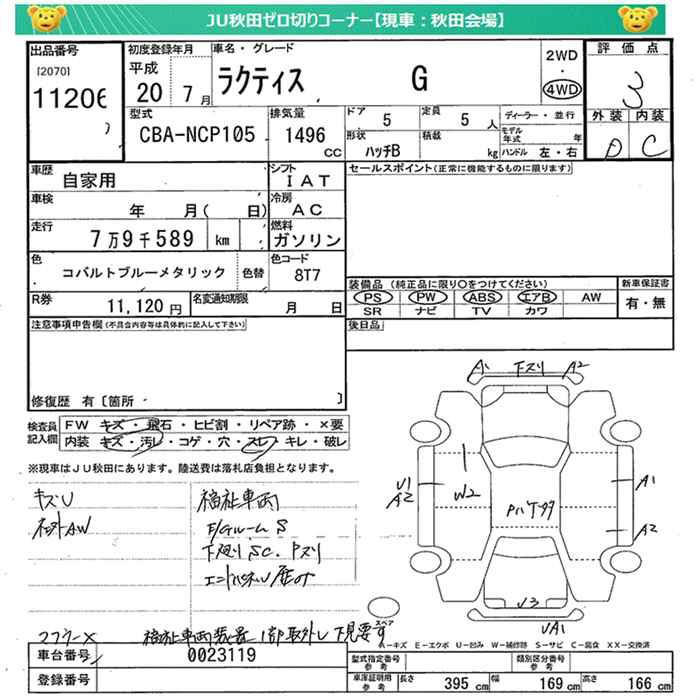 JU秋田ゼロ切りコーナー【現車：秋田会場】
出品番号
[2070]
11206
初度登録年月
平成
20 7月
車名・グレード
ラクティス G
2WD
・
4WD
評価点
3
外装 内装
D C
型式
CBA-NCP105
排気量
1496 CC
ドア 5
定員 5 人
形状 ハッチB
積載 kg
ディーラー・並行
モデル年式 年
ハンドル 左・右
車歴 自家用
シフト IAT
車検 年 月( 日)
冷房 AC
走行 7万9千589 km
燃料 ガソリン
色 コバルトブルーメタリック 色替
色コード 8T7
R券 11,120円
名変通知期限 月 日
セールスポイント(正常に機能するものに限ります)
装備品(純正品に限り○をつけてください)
PS PW ABS エアB AW
SR ナビ TV カワ
新車保証書
有・無
後日品
注意事項申告欄(不具合内容等は具体的に記入して下さい)
修復歴 有〔箇所 〕
検査員記入欄
FW キズ・飛石・ヒビ割・リペア跡・×要
内装 キズ・汚レ・コゲ・穴・スレ・キレ・破レ
※現車はJU秋田にあります。陸送費は落札店負担となります。
キズU
社外AW
福祉車両
E/Gルーム S
下廻り SC. Pスリ
マフラー×
福祉車両装置1部取外し 下見要す
A1 下スリ A2
U1
A2
W2
A1
A2
U3
UA1
スペア
A－キズ E－エクボ U－凹み W－補修跡 S－サビ C－腐食 XX－交換済
車台番号 0023119
登録番号
型式指定番号 参考
類別区分番号 参考
車庫証明用 参考
長さ 395cm 幅 169cm 高さ 166cm